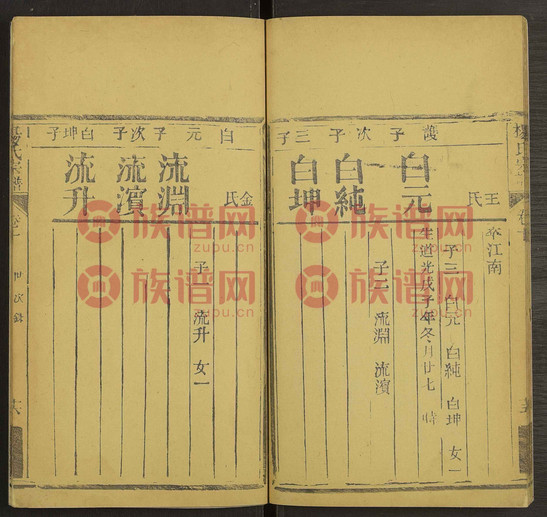 護子 次子 三子
王氏
卒江南
子三 白元 白純 白坤 女一
白元
生道光戊子年冬月廿七 時
子二 流淵 流濱
白純
白坤
白元子 次子 白坤子
金氏
流淵
子一 流升 女一
流濱
流升
氏宗譜
卷一
世次錄
十六
族谱网
zupu.cn
族谱网
zupu.cn
族谱网
zupu.cn
族谱网
zupu.cn